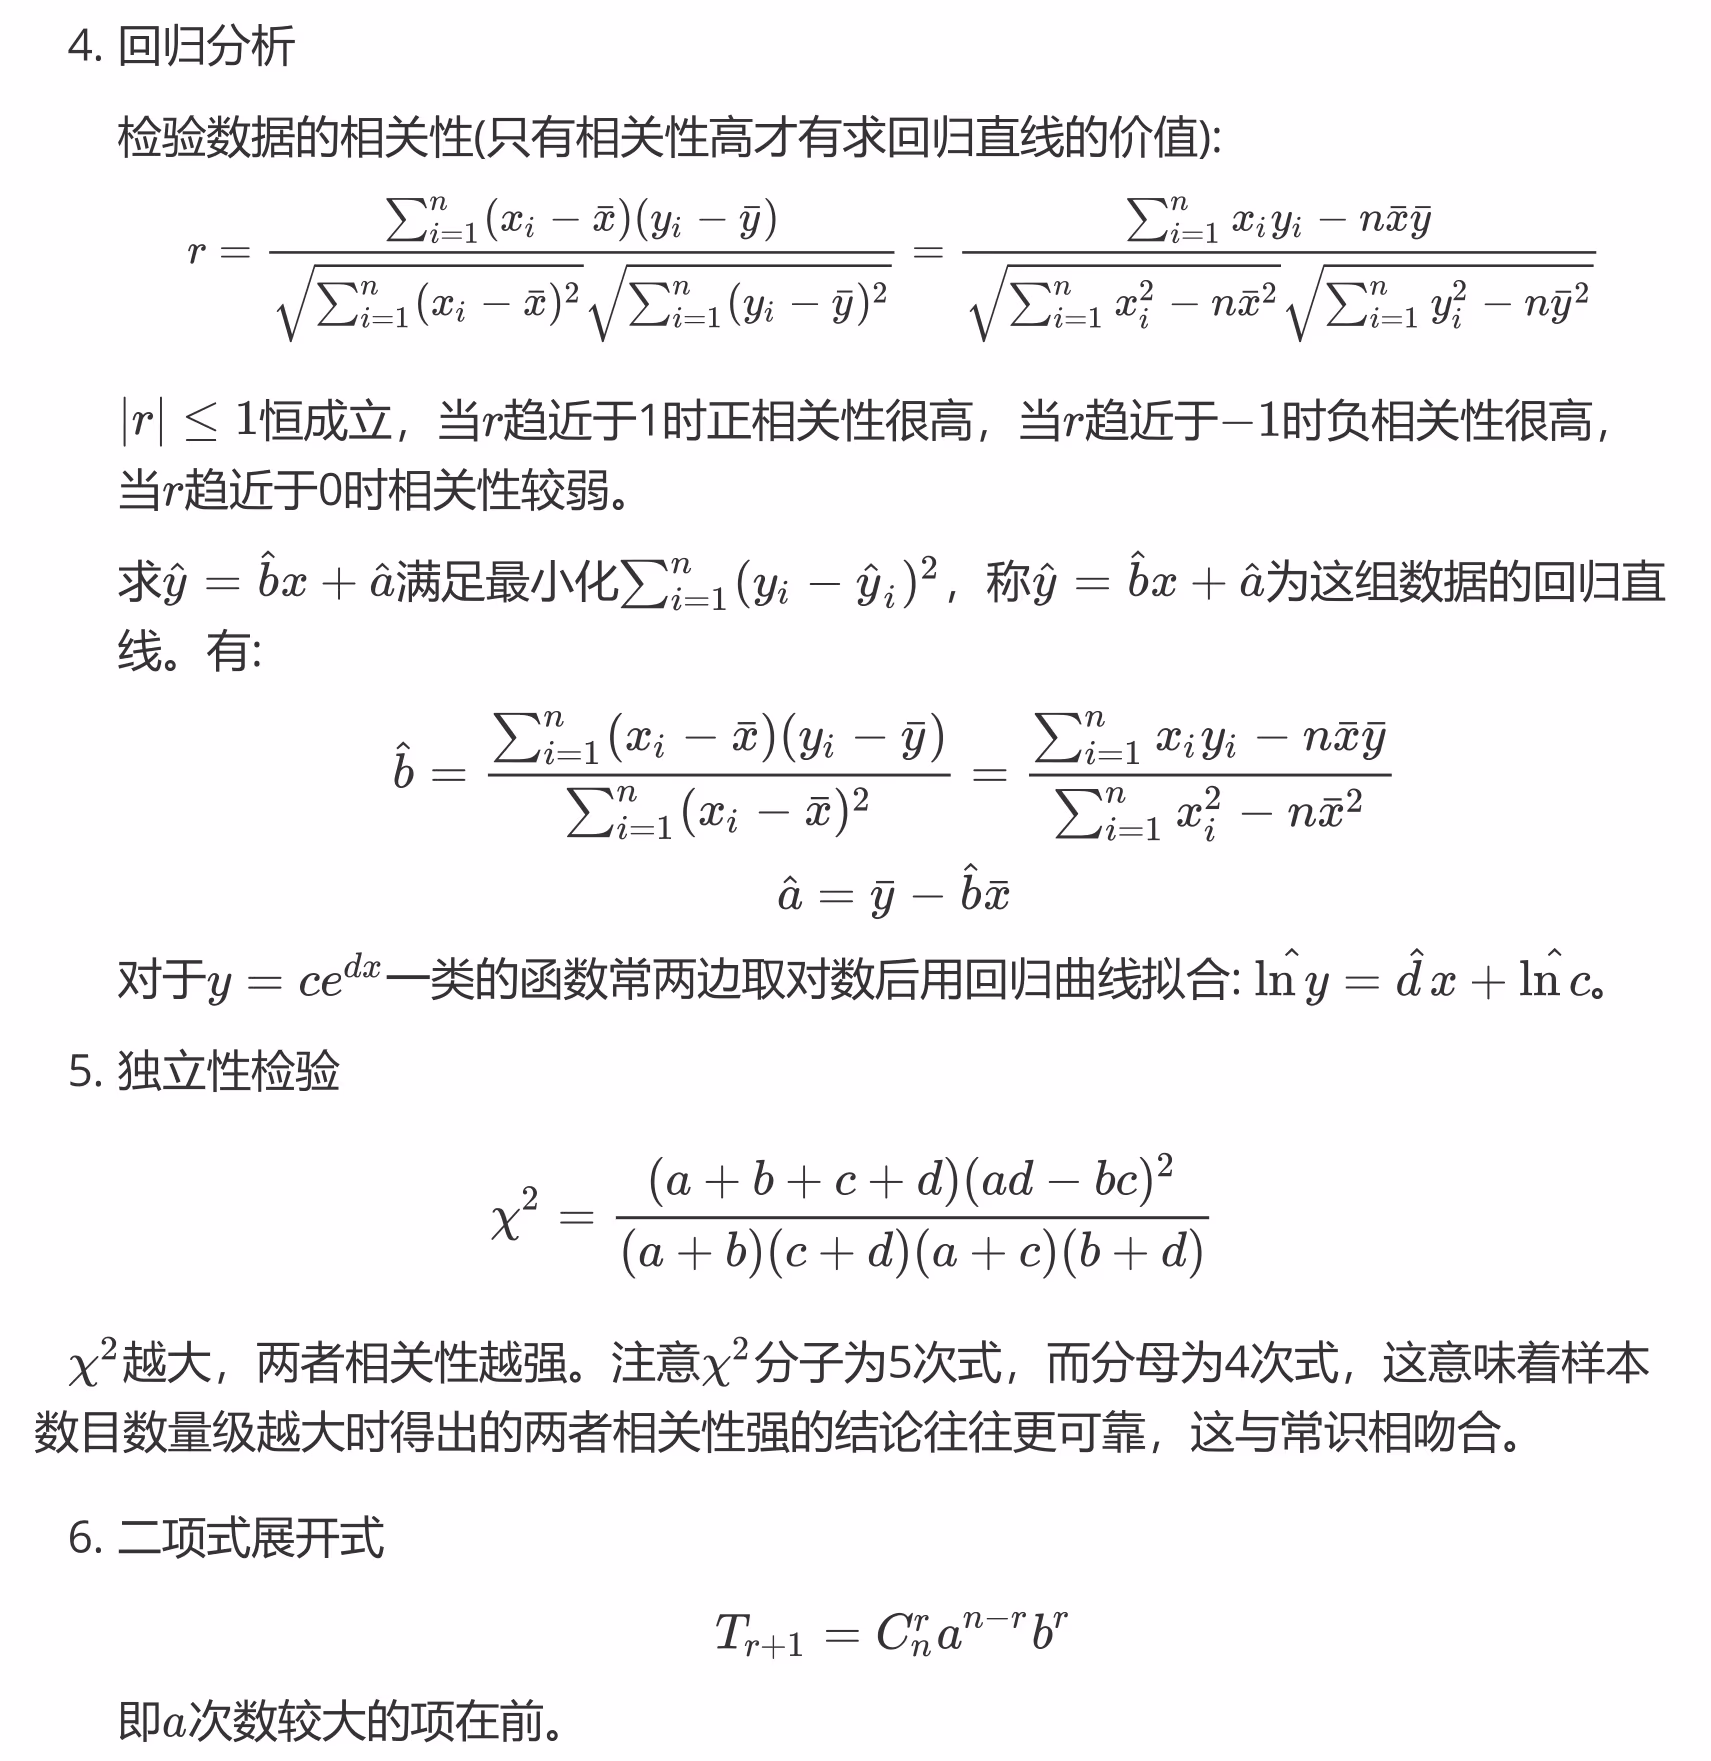 4. 回归分析
检验数据的相关性(只有相关性高才有求回归直线的价值):
r = \frac{\sum_{i=1}^{n}(x_i - \bar{x})(y_i - \bar{y})}{\sqrt{\sum_{i=1}^{n}(x_i - \bar{x})^2}\sqrt{\sum_{i=1}^{n}(y_i - \bar{y})^2}} = \frac{\sum_{i=1}^{n} x_i y_i - n\bar{x}\bar{y}}{\sqrt{\sum_{i=1}^{n} x_i^2 - n\bar{x}^2}\sqrt{\sum_{i=1}^{n} y_i^2 - n\bar{y}^2}}
|r| ≤ 1恒成立，当r趋近于1时正相关性很高，当r趋近于−1时负相关性很高，
当r趋近于0时相关性较弱。
求\hat{y} = \hat{b}x + \hat{a}满足最小化\sum_{i=1}^{n}(y_i - \hat{y}_i)^2，称\hat{y} = \hat{b}x + \hat{a}为这组数据的回归直
线。有:
\hat{b} = \frac{\sum_{i=1}^{n}(x_i - \bar{x})(y_i - \bar{y})}{\sum_{i=1}^{n}(x_i - \bar{x})^2} = \frac{\sum_{i=1}^{n} x_i y_i - n\bar{x}\bar{y}}{\sum_{i=1}^{n} x_i^2 - n\bar{x}^2}
\hat{a} = \bar{y} - \hat{b}\bar{x}
对于y = ce^{dx}一类的函数常两边取对数后用回归曲线拟合: \hat{\ln y} = \hat{d}x + \hat{\ln c}。
5. 独立性检验
\chi^2 = \frac{(a + b + c + d)(ad - bc)^2}{(a + b)(c + d)(a + c)(b + d)}
\chi^2越大，两者相关性越强。注意\chi^2分子为5次式，而分母为4次式，这意味着样本
数目数量级越大时得出的两者相关性强的结论往往更可靠，这与常识相吻合。
6. 二项式展开式
T_{r+1} = C_n^r a^{n-r} b^r
即a次数较大的项在前。